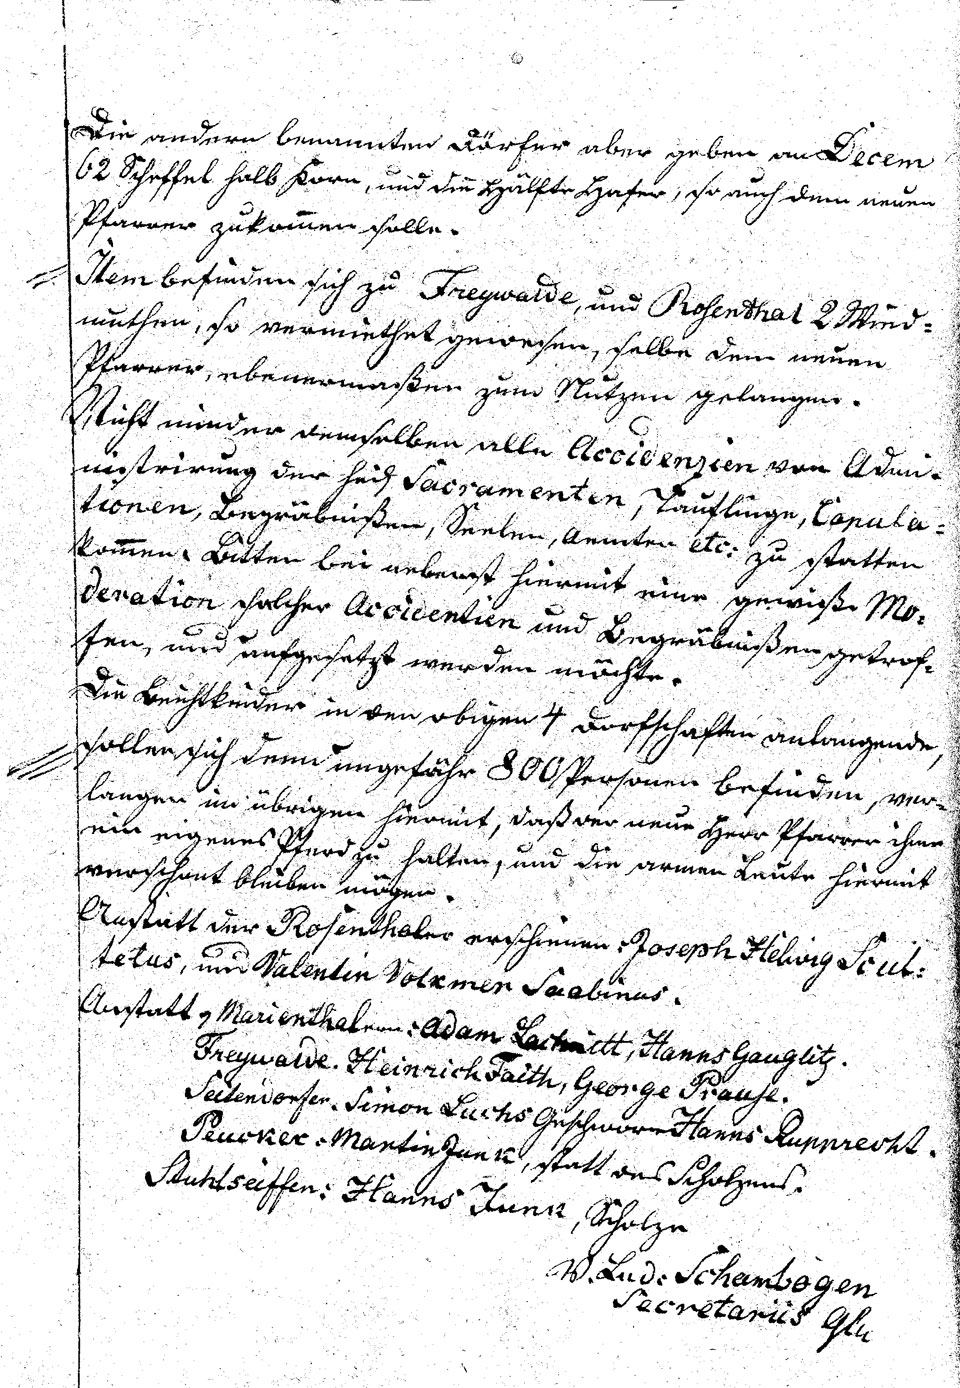 Die andern benannten Dörfer aber geben an Decem
62 Scheffel halb Korn, und die Hälfte Hafer, so auch dem neuen
Pfarrer zukommen solle.
Item befinden sich zu Freywalde, und Rosenthal 2 Wied-
muthen, so vermiethet gewesen, selbe dem neuen
Pfarrer, ebenermaßen zum Nutzen gelangen.
Nicht minder demselben alle Accidenzien von Admi-
nistrirung der heil Sacramenten, Täuflinge, Copula-
tionen, Begräbnißen, Seelen, Aemter etc: zu statten
kommen. Bitten bei nebenst hiermit eine gewiße Mo-
deration solcher Accidentien und Begräbnißen getrof-
fen, und aufgesetzt werden möchte.
Die Beichtkinder in den obigen 4 Dorfschaften anlangende,
sollen sich denn ungefähr 800 Personen befinden, ver-
langen im übrigen hiermit, daß der neue Herr Pfarrer ihme
ein eigenes Pferd zu halten, und die armen Leute hiermit
verschont bleiben mögen.
Anstatt der Rosenthaler erschienen: Joseph Helwig Scul-
tetus, und Valentin Volkmer Scabinus.
Anstatt Marienthalern: Adam Lachnitt, Hanns Gauglitz.
Freywalde. Heinrich Faith, George Prause.
Seitendorfer. Simon Luchs Geschworne Hanns Rupprecht.
Peucker. Martin Junk, statt des Scholzens.
Stuhlseiffen: Hanns Junk, Scholze
W. Lud: Schambogen
Secretarius Glu